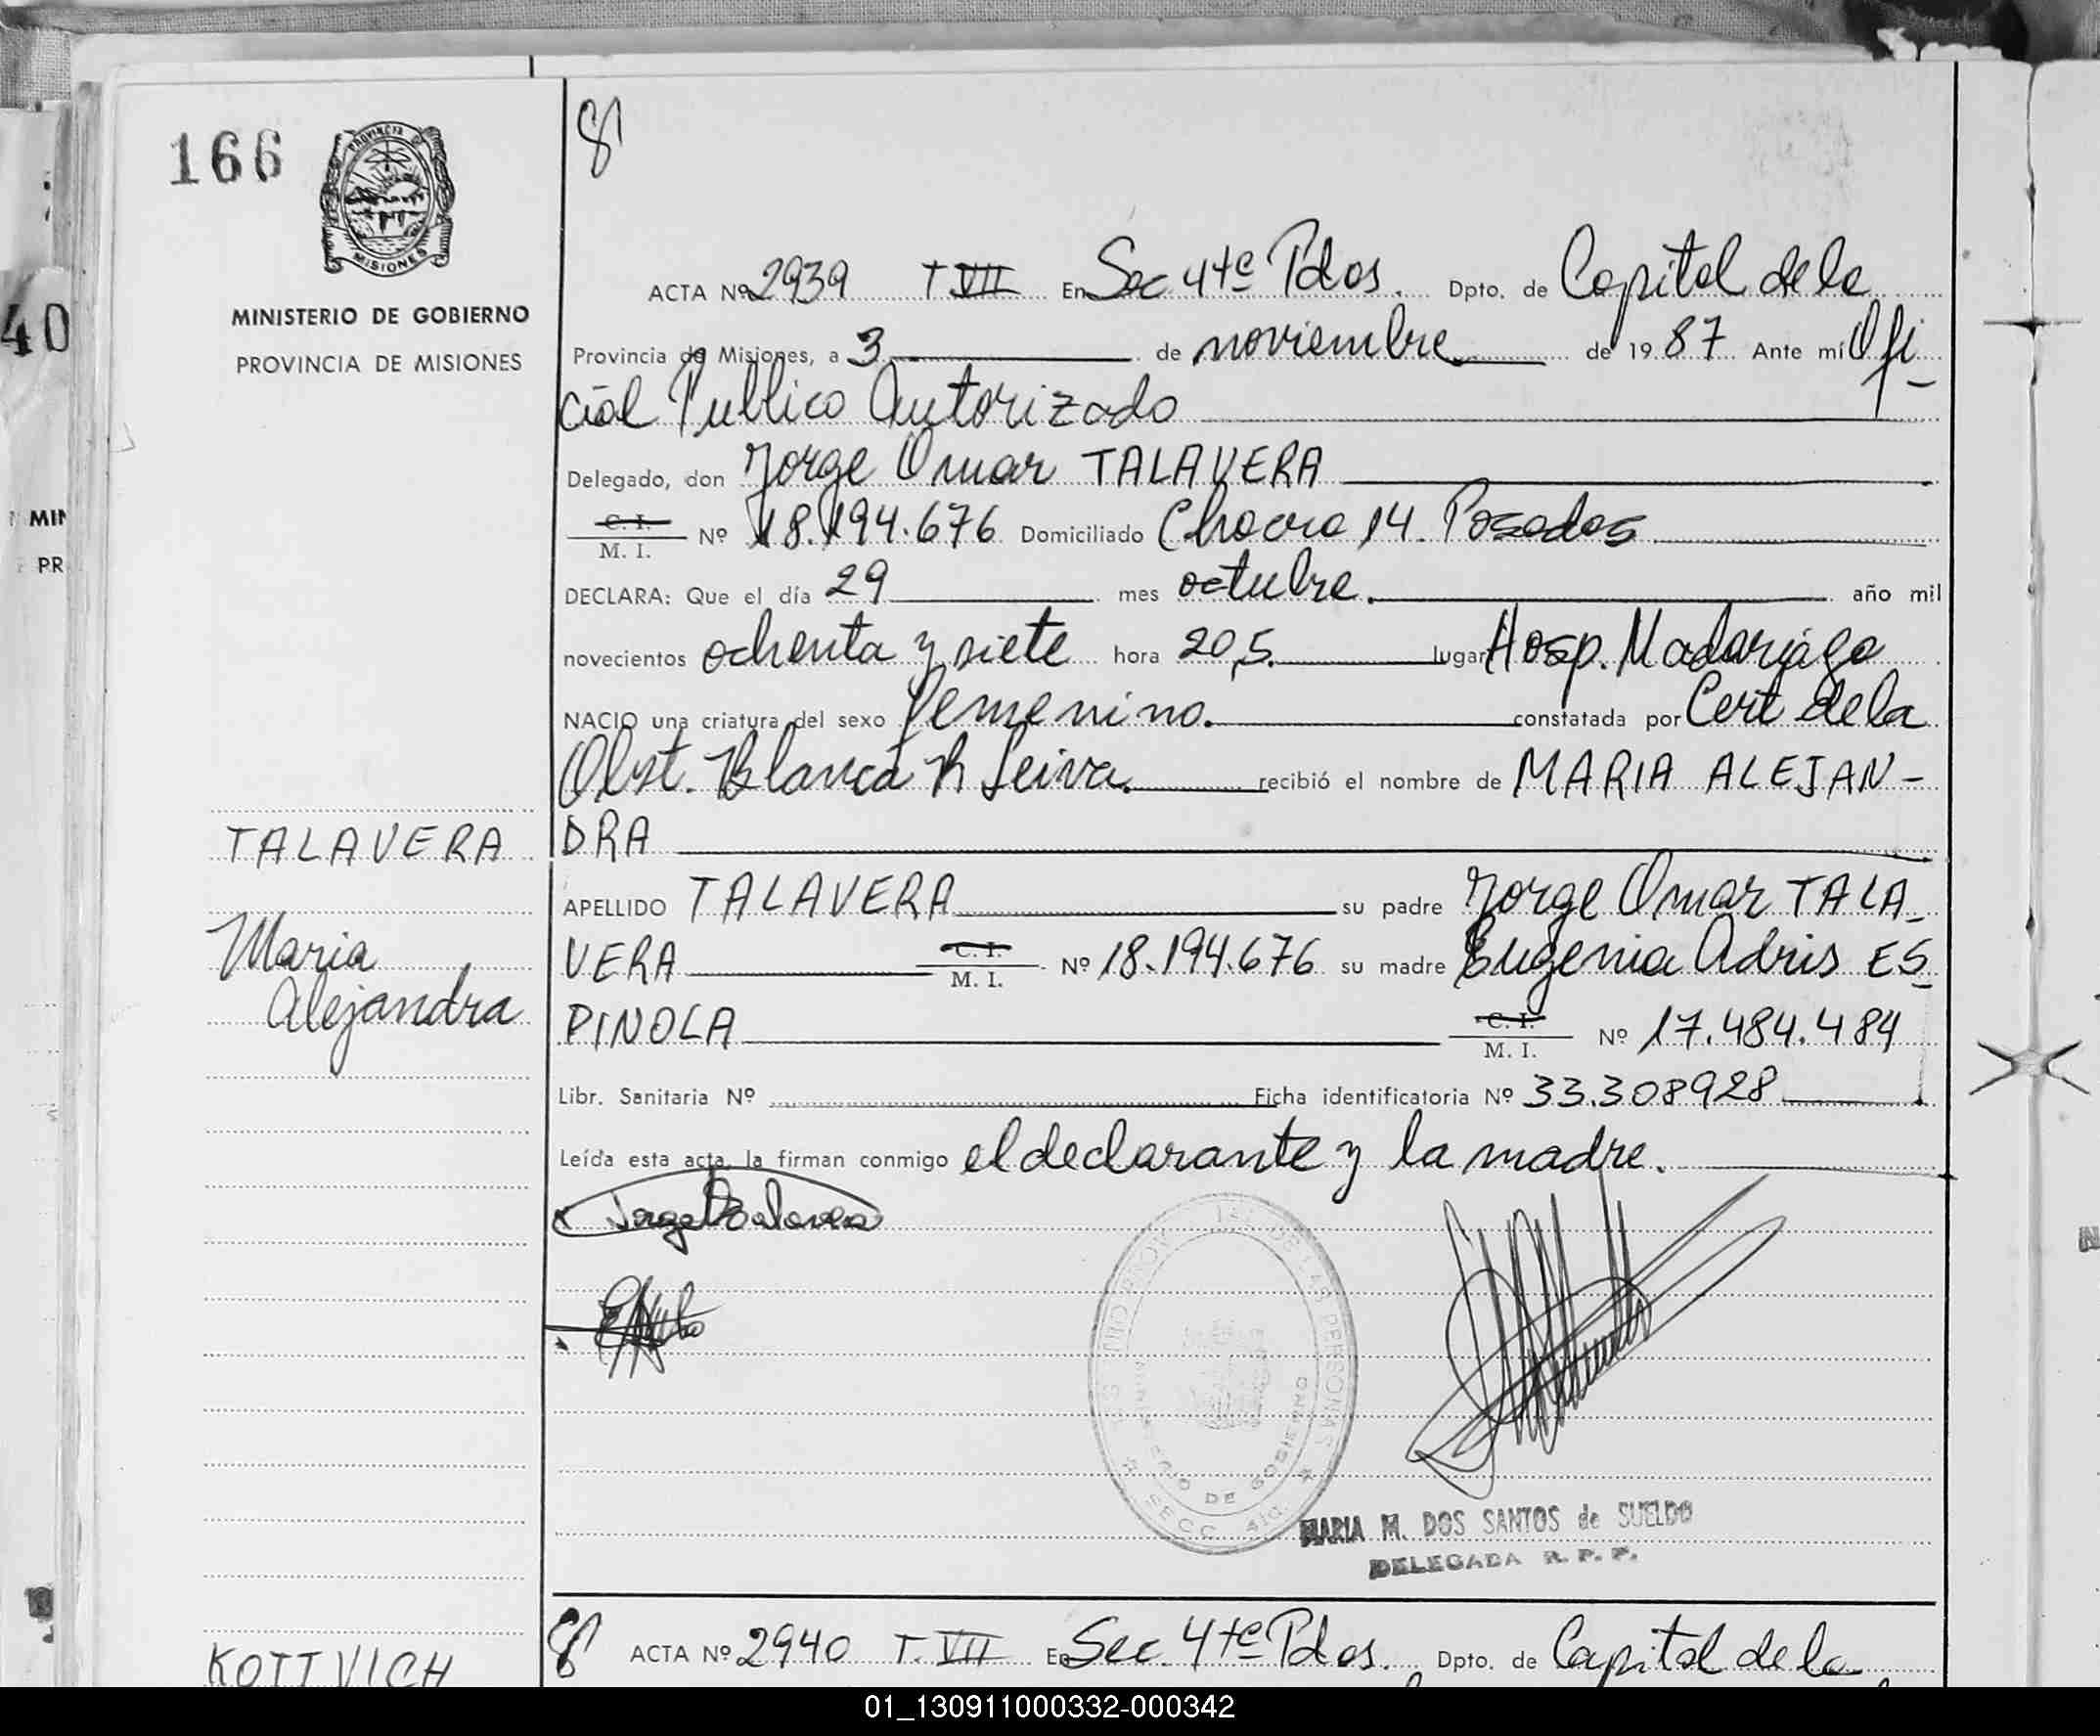 8
166
PROVINCIA DE
MISIONES
MINISTERIO DE GOBIERNO
PROVINCIA DE MISIONES
40
MIN
PR
ACTA Nº 2939 T VII En Sec 4te Pdos. Dpto. de Capital de la
Provincia de Misiones, a 3 de noviembre de 1987 Ante mí Ofi-
cial Publico Autorizado
Delegado, don Jorge Omar TALAVERA
C. I.
M. I. Nº 18.194.676 Domiciliado Chacra 14. Posadas
DECLARA: Que el día 29 mes octubre. año mil
novecientos ochenta y siete hora 20,5. lugar Hosp. Madariaga
NACIO una criatura del sexo femenino. constatada por Cert de la
Obst. Blanca R Leiva. recibió el nombre de MARIA ALEJAN-
TALAVERA
DRA
APELLIDO TALAVERA su padre Jorge Omar TALA-
Maria
VERA C. I. M. I. Nº 18.194.676 su madre Eugenia Adris ES-
Alejandra
PINOLA C. I. M. I. Nº 17.484.484
Libr. Sanitaria Nº Ficha identificatoria Nº 33.308928
Leída esta acta, la firman conmigo el declarante y la madre.
DE LAS PERSONAS
DE GOBIERNO
SECC. 4ta.
MARIA M. DOS SANTOS de SUELDO
DELEGADA R. P. P.
KOTTVICH
8 ACTA Nº 2940 T. VII En Sec. 4te Pdos. Dpto. de Capital de la
01_130911000332-000342